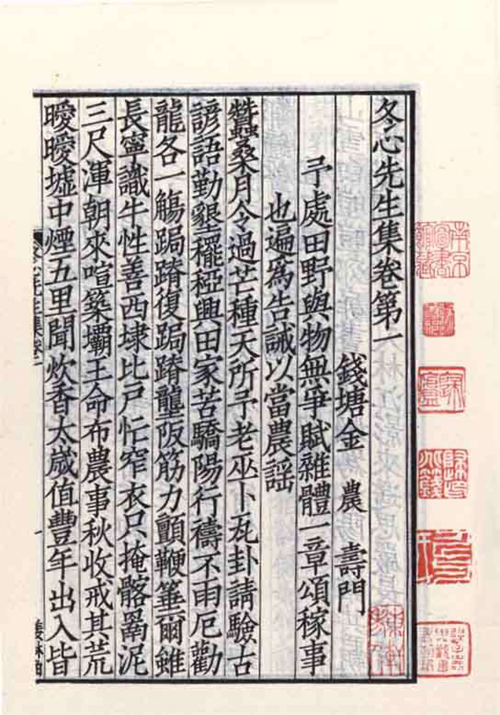 冬心先生集卷第一
錢塘金 農 壽門
予處田野與物無爭賦雜體一章頌稼事
也遍為告誡以當農謡
蠶桑月令過芒種天所予老巫卜瓦卦請驗古
諺語勤墾穲稏興田家苦驕陽行禱不雨厄勸
龍各一觴跼蹐復跼蹐壟阪筋力顫鞭箠爾雖
長寧識牛性善西埭比戶忙窄衣只掩髂鬲泥
三尺渾朝來喧築壩王命布農事秋收戒其荒
曖曖墟中煙五里聞炊香太歲值豐年出入皆
南京圖書館藏